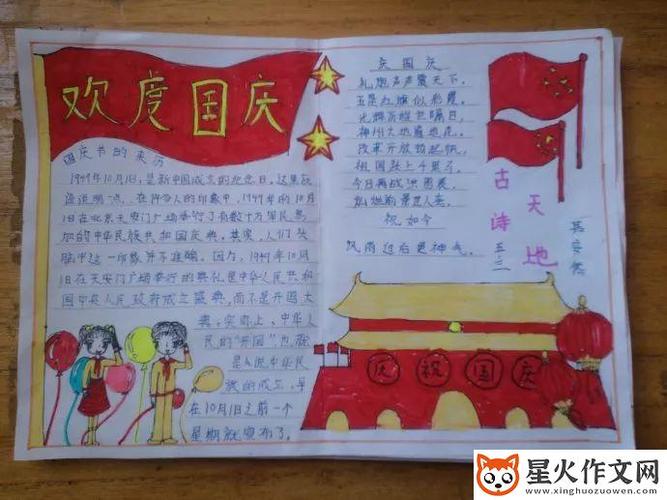 欢度国庆
国庆节的来历
1949年10月1日,是新中国成立的纪念日。这里应
该说明一点,在许多人的印象中,1949年的10月
1日在北京天安门广场举行了有数十万军民参
加的中华民族共和国庆典。其实,人们头
脑中这一印象并不准确。因为,1949年10月
1日在天安门广场举行的典礼是中华人民共和
国中央人民政府成立盛典,而不是开国大
典。实际上,中华人
民的"开国"也就
是么说中华民
族的成立,早
在10月1日之前一个
星期就宣布了。
国庆
礼炮声声震天下,
五星红旗似彩霞。
光辉历程
神州大地
改革开放
祖国
今日再战洪图展,
祝如今
风雨过后更神气。
古诗
天地
五.二
庆祝国庆
星火作文网
www.xinghuozuowen.com